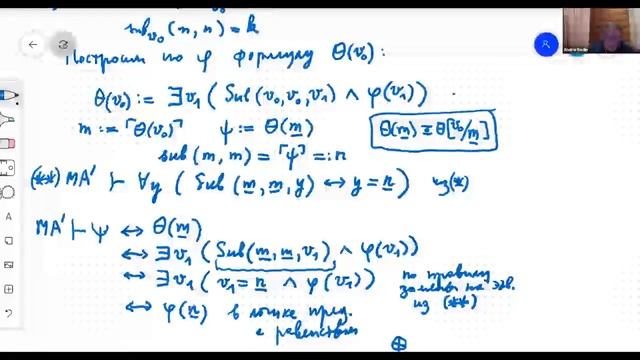 sub_{v₀}(n, n) = k
Построим по φ формулу Θ(v₀):
Θ(v₀) := ∃v₁ ( Sub(v₀, v₀, v₁) ∧ φ(v₁) )
m := ⌜Θ(v₀)⌝ ψ := Θ(m̲) Θ(m̲) ≡ Θ[v₀/m̲]
sub(m, m) = ⌜ψ⌝ =: n
(**) MA′ ⊢ ∀y ( Sub(m̲, m̲, y) ↔ y = n̲ ) из(*)
MA′ ⊢ ψ ↔ Θ(m̲)
↔ ∃v₁ ( Sub(m̲, m̲, v₁) ∧ φ(v₁) )
↔ ∃v₁ ( v₁ = n̲ ∧ φ(v₁) ) по правилу
замены на экв.
из (**)
↔ φ(n̲) в логике пред.
с равенством
⊕
A